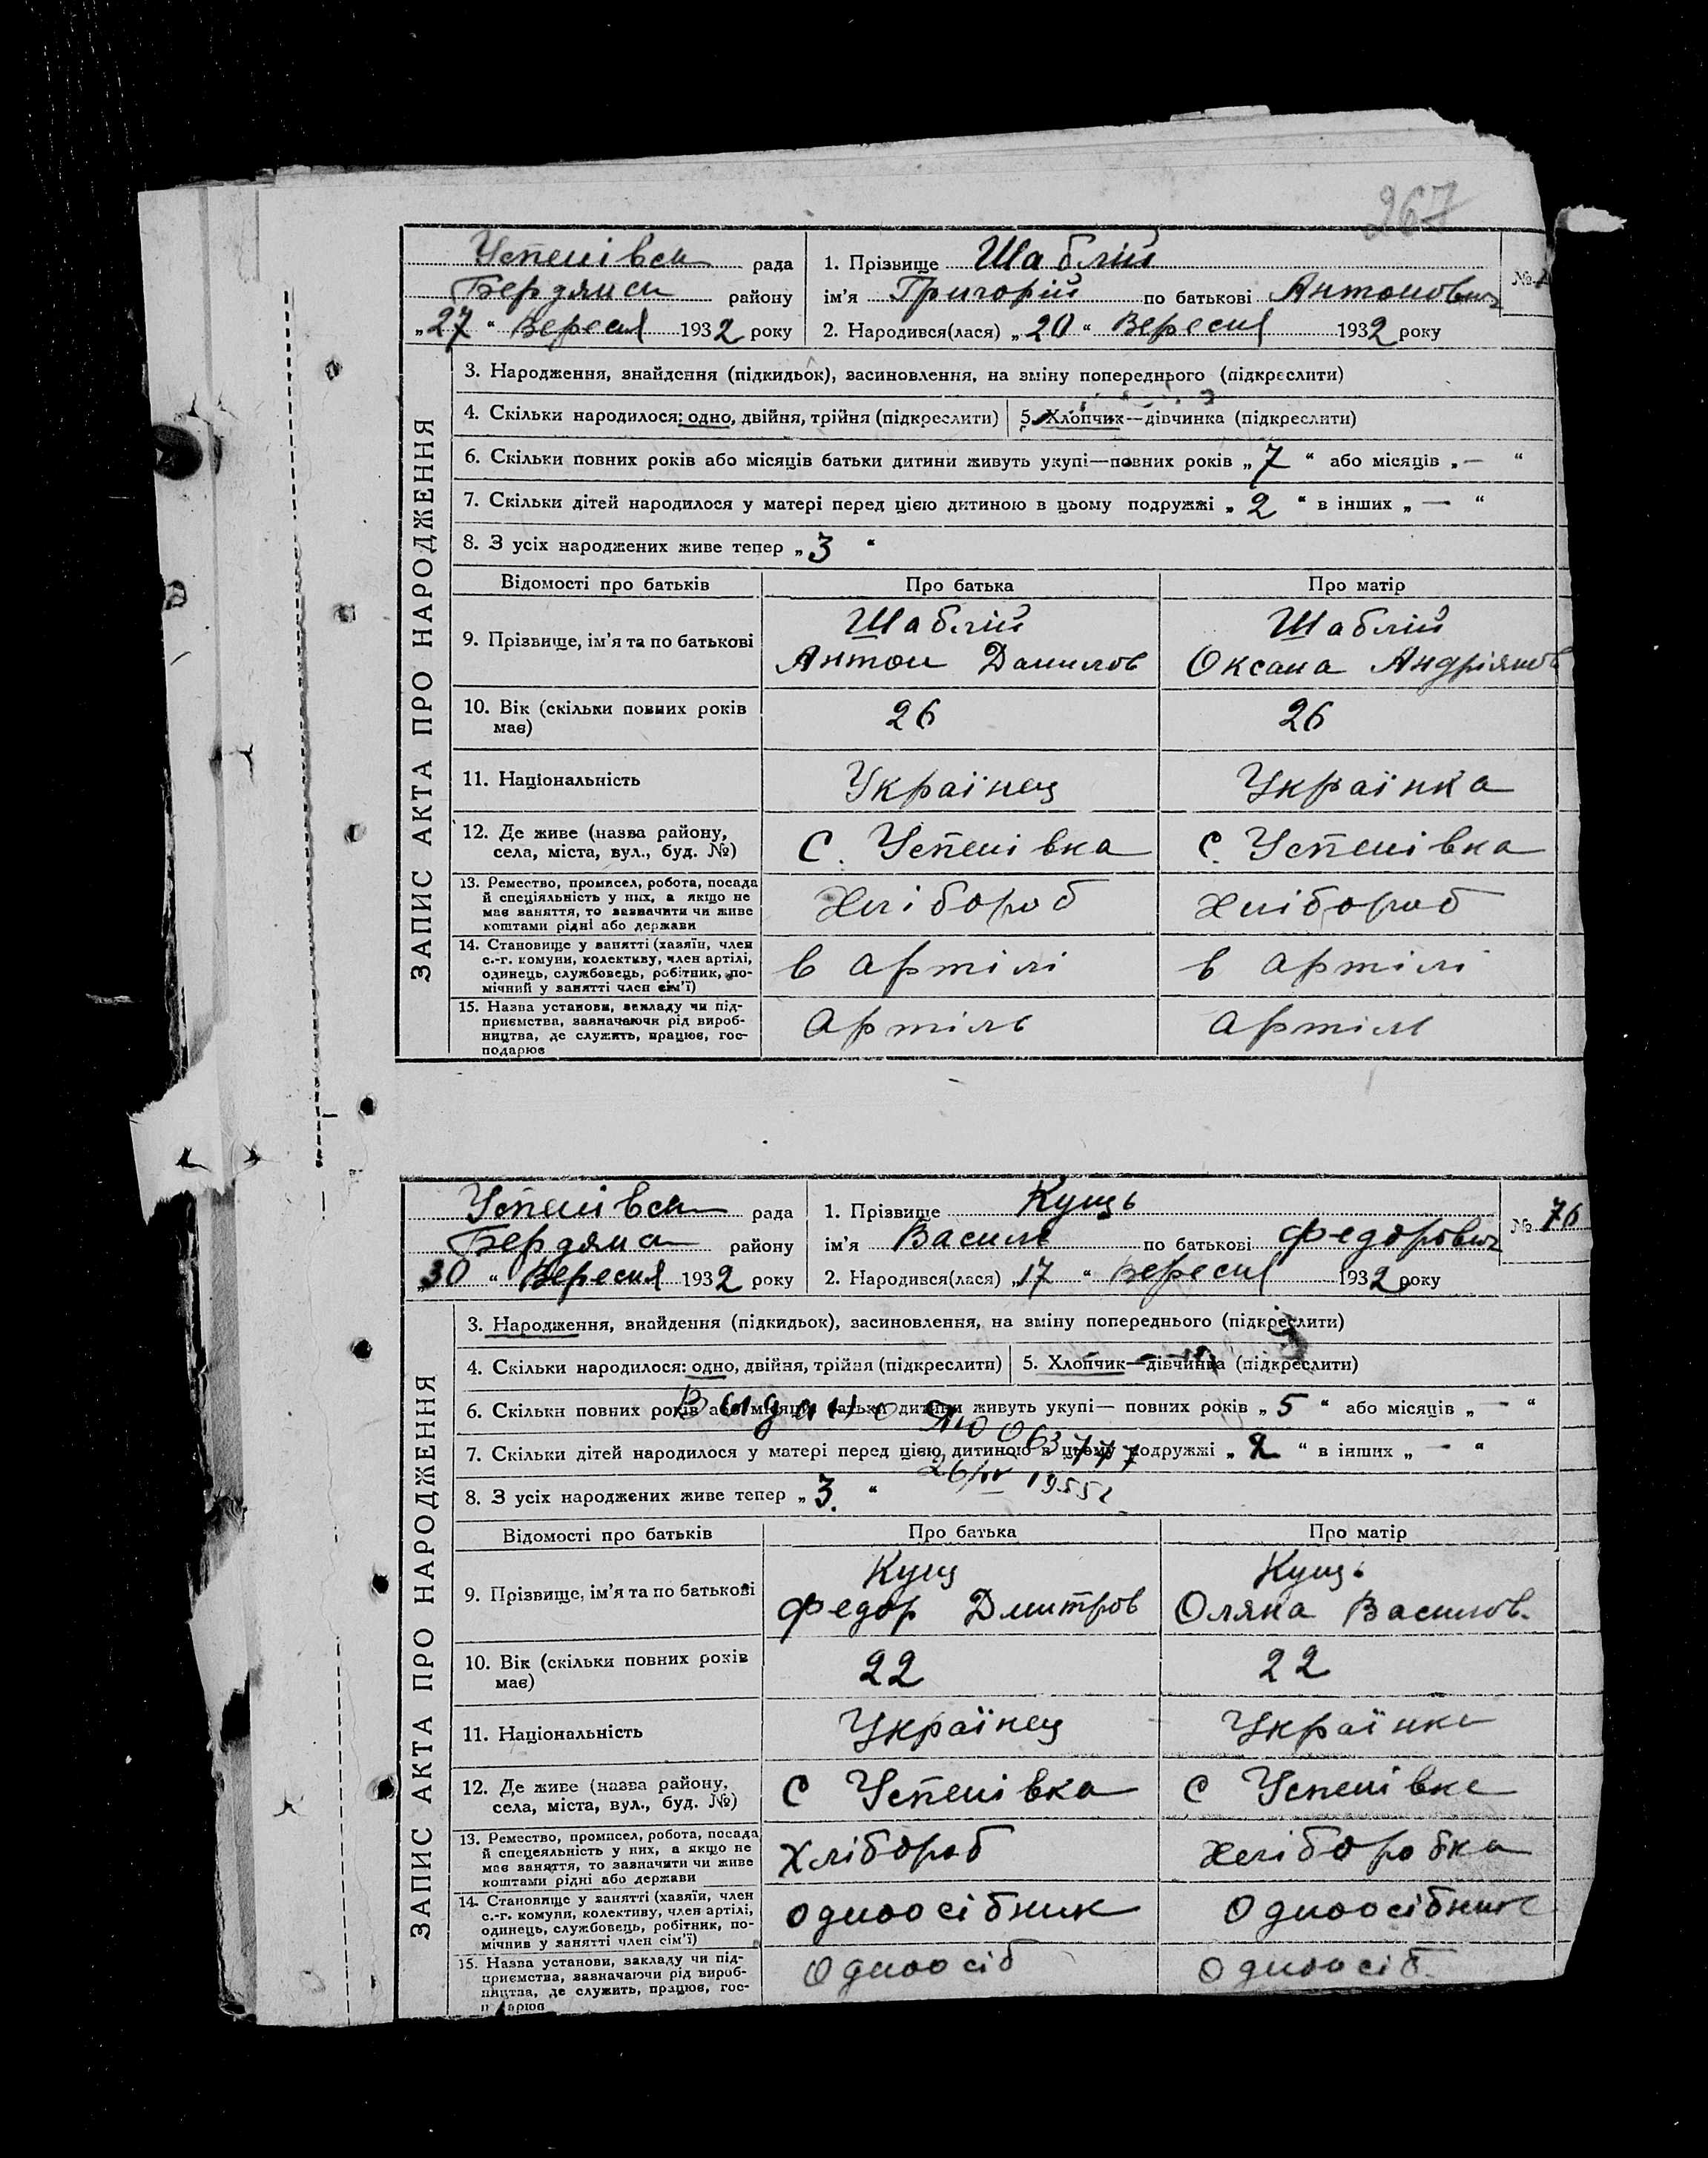 267
Успенівськ рада
Бердянськ району
„27“ Вересня 1932 року
1. Прізвище Шаблій
ім'я Григорій по батькові Антонович
2. Народився(лася) „20“ Вересня 1932 року
№
ЗАПИС АКТА ПРО НАРОДЖЕННЯ
3. Народження, знайдення (підкидьок), засиновлення, на зміну попереднього (підкреслити)
4. Скільки народилося: одно, двійня, трійня (підкреслити) 5. Хлопчик—дівчинка (підкреслити)
6. Скільки повних років або місяців батьки дитини живуть укупі—повних років „7“ або місяців „—“
7. Скільки дітей народилося у матері перед цією дитиною в цьому подружжі „2“ в інших „—“
8. З усіх народжених живе тепер „3“
Відомості про батьків Про батька Про матір
9. Прізвище, ім'я та по батькові
Шаблій Шаблій
Антон Данилов Оксана Андріянов
10. Вік (скільки повних років
має)
26 26
11. Національність Українец Українка
12. Де живе (назва району,
села, міста, вул., буд. №)
С. Успенівка с. Успенівка
13. Ремество, промисел, робота, посада
й спеціяльність у них, а якщо не
має заняття, то зазначити чи живе
коштами рідні або держави
Хлібороб Хлібороб
14. Становище у занятті (хазяїн, член
с.-г. комуни, колективу, член артілі,
одинець, службовець, робітник, по-
мічний у занятті член сім'ї)
в артілі в артілі
15. Назва установи, закладу чи під-
приємства, зазначаючи рід вироб-
ництва, де служить, працює, гос-
подарює
Артіль Артіль
Успенівськ рада
Бердянськ району
„30“ Вересня 1932 року
1. Прізвище Кущь
ім'я Василь по батькові Федорович
2. Народився(лася) „17“ Вересня 1932 року
№ 76
ЗАПИС АКТА ПРО НАРОДЖЕННЯ
3. Народження, знайдення (підкидьок), засиновлення, на зміну попереднього (підкреслити)
4. Скільки народилося: одно, двійня, трійня (підкреслити) 5. Хлопчик—дівчинка (підкреслити)
6. Скільки повних років або місяців батьки дитини живуть укупі— повних років „5“ або місяців „—“
Видано ЯЮ 063777
7. Скільки дітей народилося у матері перед цією дитиною в цьому подружжі „2“ в інших „—“
26/IV 1955г
8. З усіх народжених живе тепер „3.“
Відомості про батьків Про батька Про матір
9. Прізвище, ім'я та по батькові
Кущ Кущь
Федор Дмитров Оляна Васильов.
10. Вік (скільки повних років
має)
22 22
11. Національність Українец Українка
12. Де живе (назва району,
села, міста, вул., буд. №)
С Успенівка С Успенівка
13. Ремество, промисел, робота, посада
й спецеяльність у них, а якщо не
має заняття, то зазначити чи живе
коштами рідні або держави
Хлібороб Хліборобка
14. Становище у занятті (хазяїн, член
с.-г. комуни, колективу, член артілі,
одинець, службовець, робітник, по-
мічнив у занятті член сім'ї)
одноосібник Одноосібник
15. Назва установи, закладу чи під-
приємства, зазначаючи рід вироб-
ництва, де служить, працює, гос-
Одноосіб Одноосіб